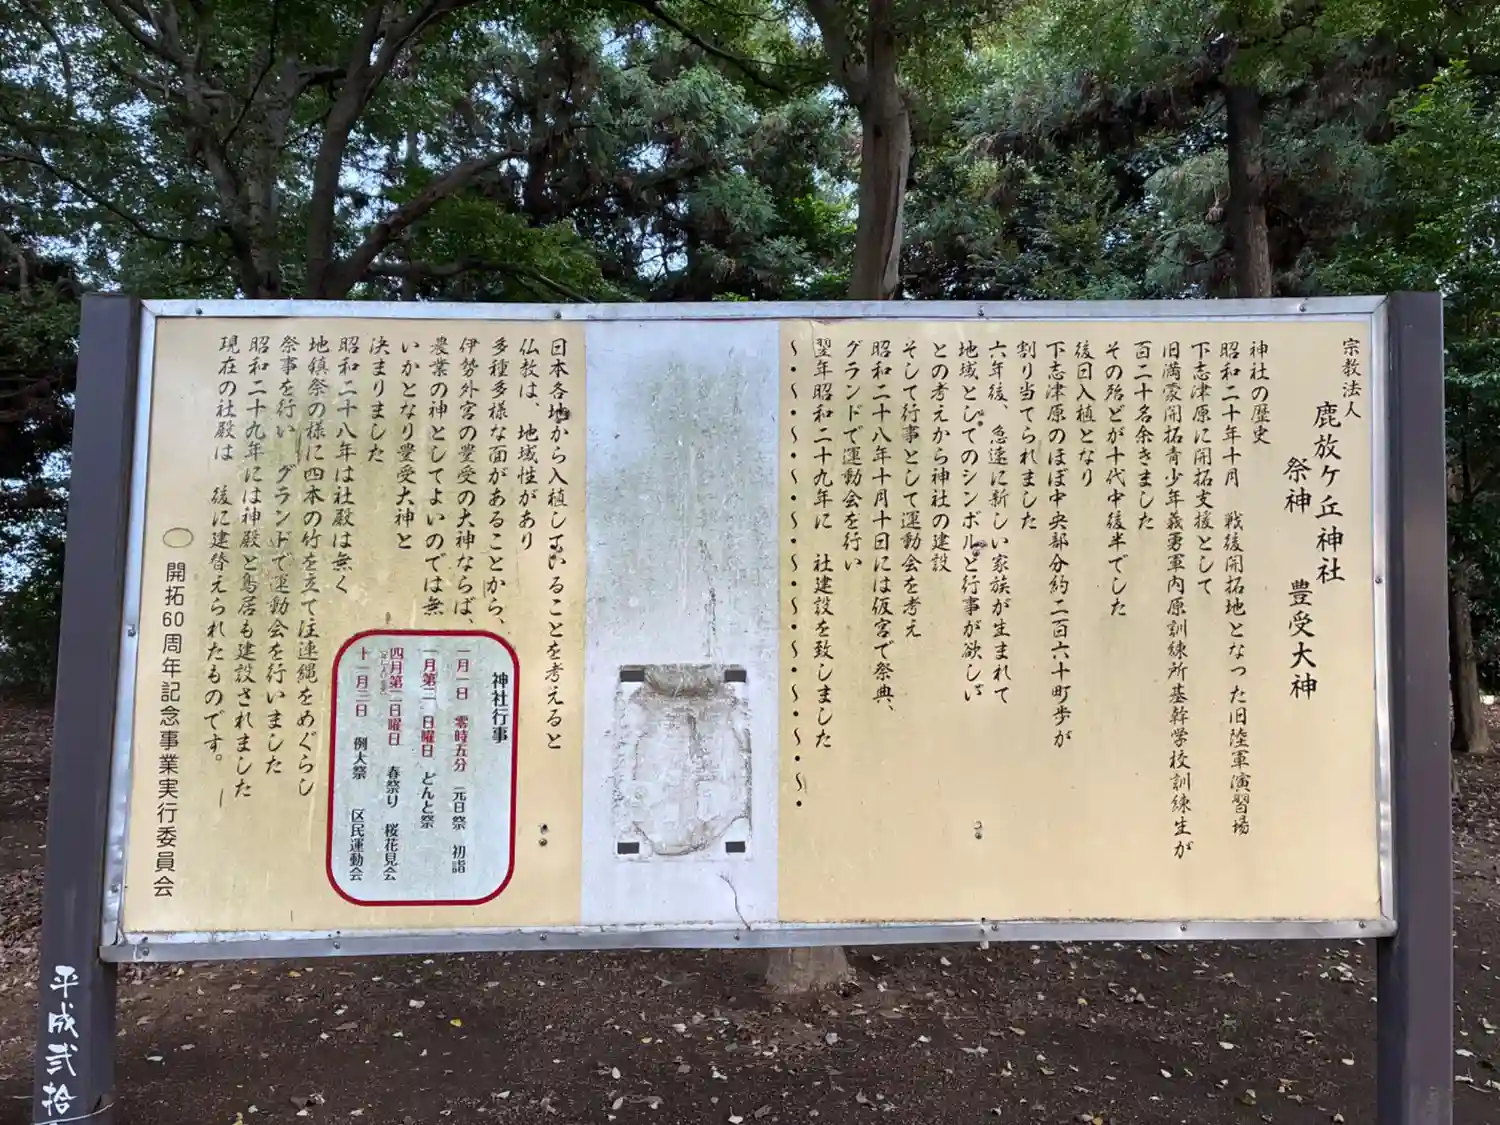 宗教法人
鹿放ケ丘神社
祭神 豊受大神
神社の歴史
昭和二十年十月 戦後開拓地となった旧陸軍演習場
下志津原に開拓支援として
旧満蒙開拓青少年義勇軍内原訓練所基幹学校訓練生が
百二十名余きました
その殆どが十代中後半でした
後回入植となり
下志津原のほぼ中央部分約二百六十町歩が
割り当てられました
六年後、急速に新しい家族が生まれて
地域としてのシンボルと行事が欲しい
との考えから神社の建設
そして行事として運動会を考え
昭和二十八年十月十日には仮宮で祭典、
グランドで運動会を行い
翌年昭和二十九年に 社建設を致しました
～・～・～・～・～・～・～・～・～・～・～・
日本各地から入植していることを考えると
仏教は、地域性があり
多種多様な面があることから、
伊勢外宮の豊受の大神ならば、
農業の神としてよいのでは無
いかとなり豊受大神と
決まりました
昭和二十八年は社殿は無く
地鎮祭の様に四本の竹を立て注連縄をめぐらし
祭事を行い グランドで運動会を行いました
昭和二十九年には神殿と鳥居も建設されました
現在の社殿は 後に建替えられたものです。
神社行事
一月一日 零時五分 元日祭 初詣
一月第二 日曜日 どんと祭
四月第二日曜日 春祭り 桜花見会
十一月三日 例大祭 区民運動会
開拓60周年記念事業実行委員会
平成弐拾